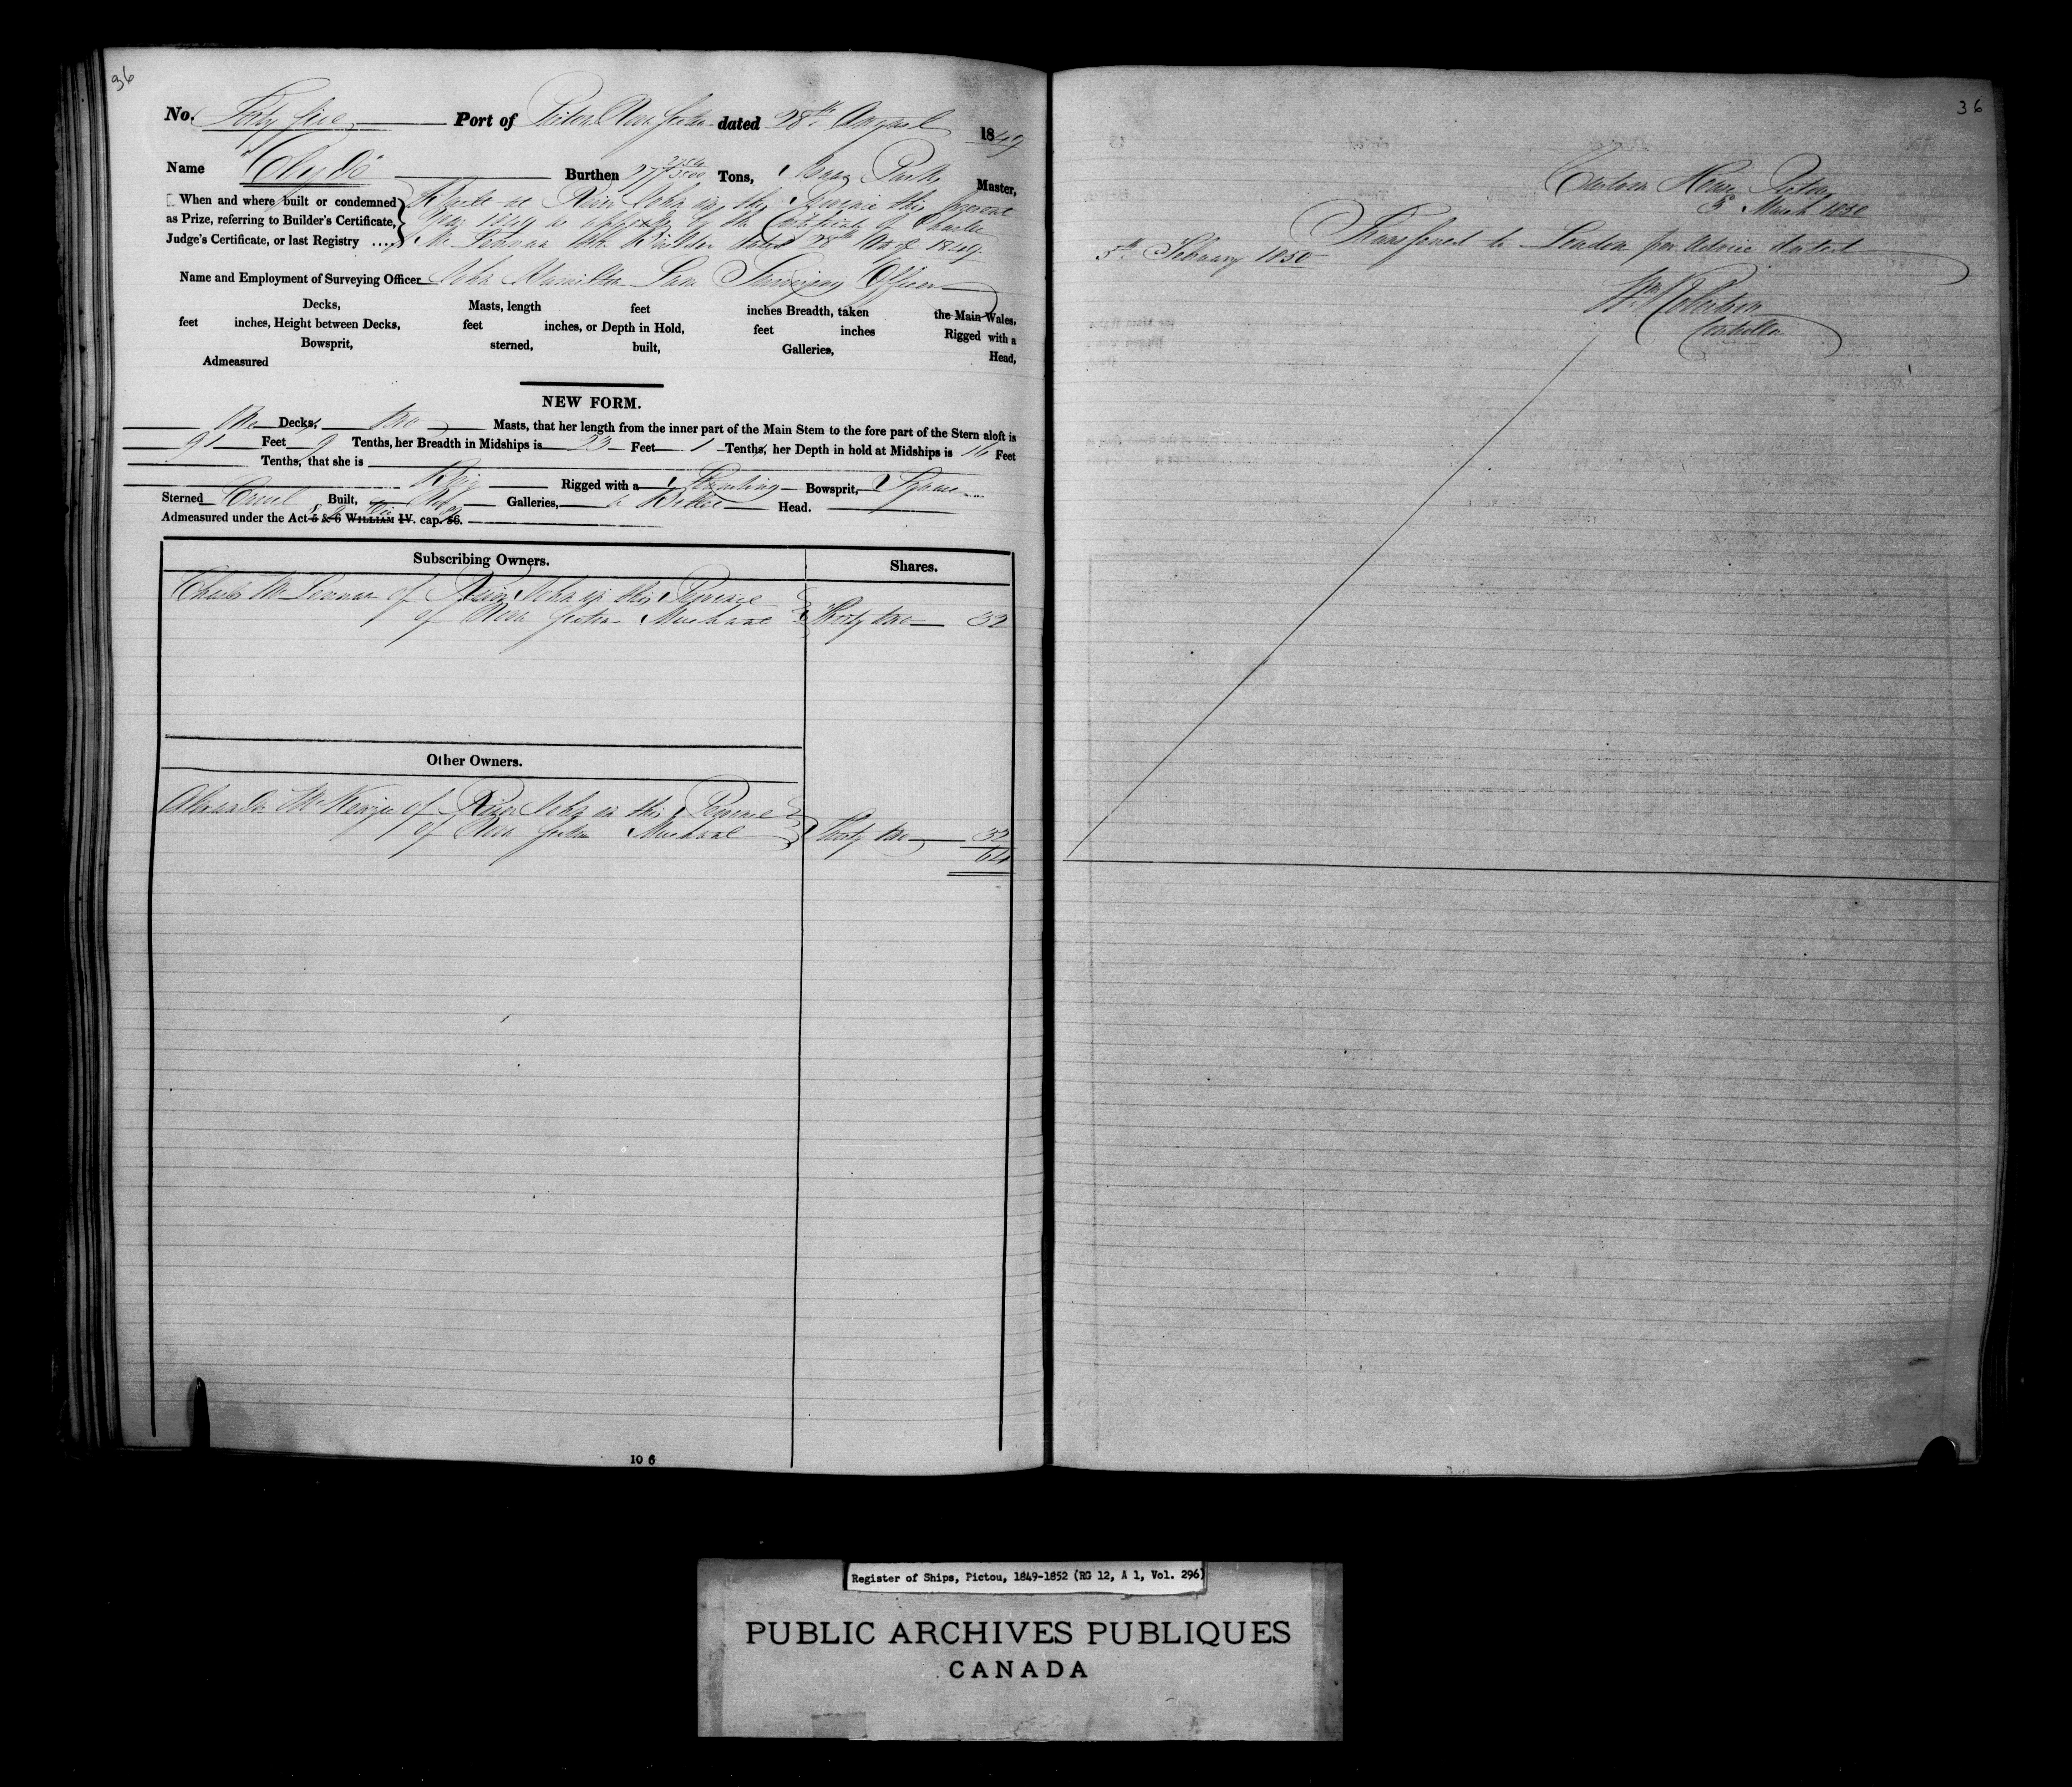 36
No. Forty five Port of Pictou Nova Scotia dated 28th August 1849
Name "Clyde" Burthen Tons, Isaac Master,
When and where built or condemned Built at River John in this Province this present
as Prize, referring to Builder's Certificate, Year 1849 as appears by the Certificate of Charles
Judge's Certificate, or last Registry .... McLennan the Builder dated 28th Augt 1849.
Name and Employment of Surveying Officer John Hamilton Lane Surveying Officer
Decks, Masts, length feet inches Breadth, taken the Main Wales,
feet inches, Height between Decks, feet inches, or Depth in Hold, feet inches Rigged with a
Bowsprit, sterned, built, Galleries, Head,
Admeasured
NEW FORM.
One Decks, two Masts, that her length from the inner part of the Main Stem to the fore part of the Stern aloft is
91 Feet 9 Tenths, her Breadth in Midships is 23 Feet 1 Tenths, her Depth in hold at Midships is 16 Feet
Tenths, that she is
Brig Rigged with a Standing Bowsprit, Square
Sterned Carvel Built, No Galleries, a Billet Head.
Admeasured under the Act 5 & 6 WILLIAM IV. cap. 56.
Subscribing Owners. Shares.
Charles McLennan of River John in this Province
of Nova Scotia Merchant Thirty two 32
Other Owners.
Alexander McKenzie of River John in this Province
of Nova Scotia Merchant Thirty two 32
64
10 6
36
Custom House Pictou
5 March 1850
Transferred to London per Advice dated
5th February 1850
Wm Robertson
Controller
Register of Ships, Pictou, 1849-1852 (RG 12, A 1, Vol. 296)
PUBLIC ARCHIVES PUBLIQUES
CANADA